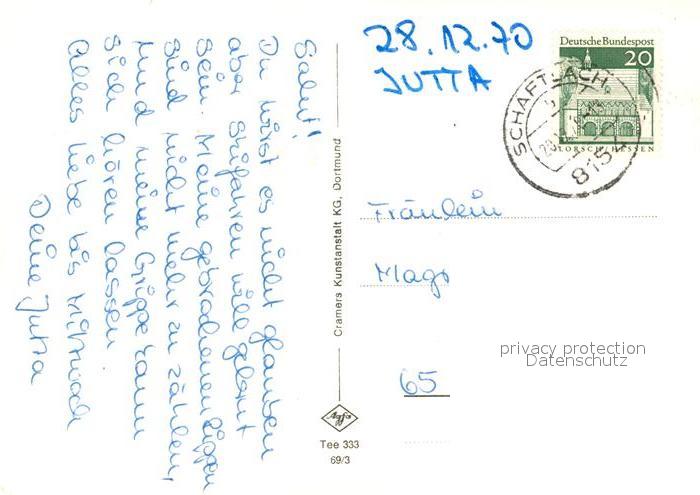 Salut!
Du wirst es nicht glauben
aber Skifahren will gelernt
sein. Meine gebrochenen Rippen
sind nicht mehr zu zählen,
und meine Grippe kann
sich hören lassen
Alles liebe bis Mittwoch
Deine Jutta
Cramers Kunstanstalt KG, Dortmund
Agfa
Tee 333
69/3
28.12.70
JUTTA
Deutsche Bundespost
20
LORSCH/HESSEN
SCHAFTLACH
8151
Fräulein
65
privacy protection
Datenschutz